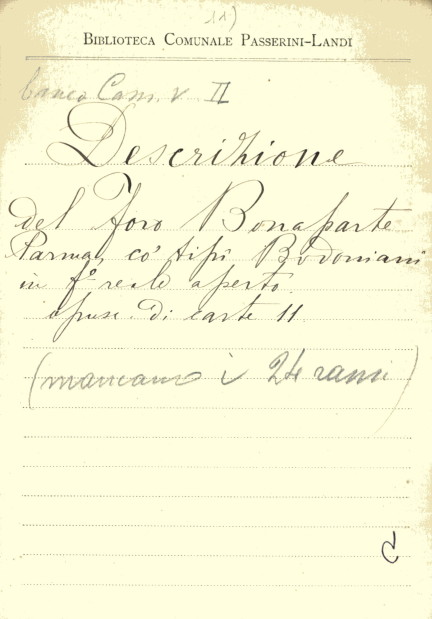 11)
BIBLIOTECA COMUNALE PASSERINI-LANDI
banco Cam. V. II
Descrizione
del Foro Bonaparte
Parma, co' tipi Bodoniani
in f.º reale aperto.
opusc. di carte 11
(mancano i 24 rami)